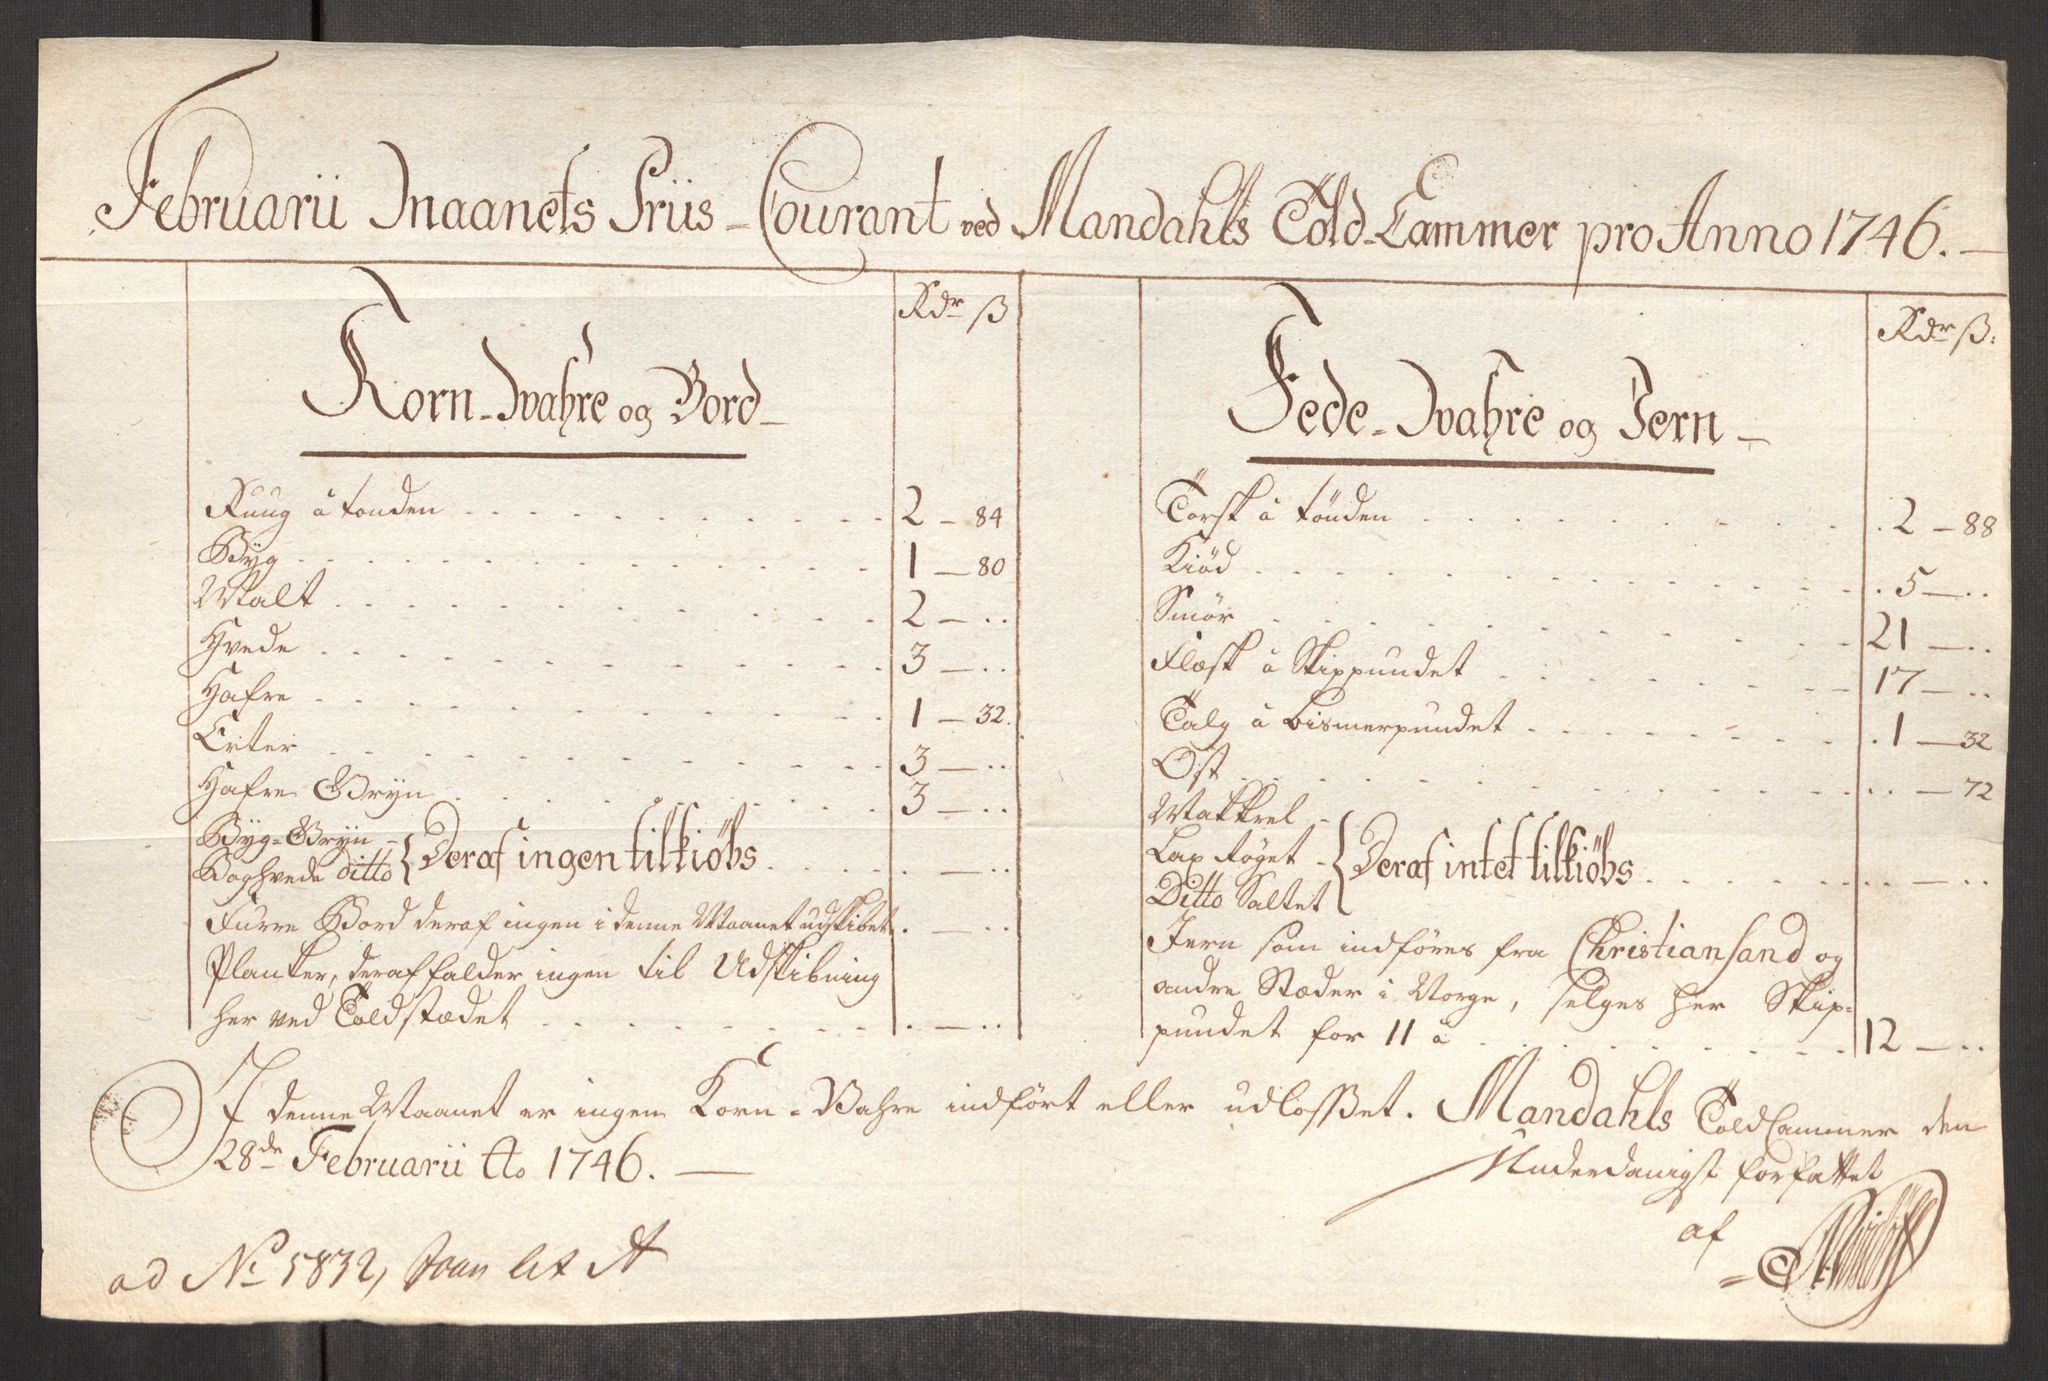 Februarii Maanets Priis-Courant ved Mandahls Told-Cammer pro Anno 1746.
Rdr ß
Korn-Wahre og Bord
Ruug á tonden 2 - 84
Byg 1 - 80
Malt 2 - ..
Hvede 3 - ..
Hafre 1 - 32.
Erter 3 - ..
Hafre Gryn 3 - ..
Byg-Gryn -
Boghvede ditto { Deraf ingen tilkiöbs . - ..
Furre Bord deraf ingen i denne Maanet udskibet . - ..
Planker, deraf falder ingen til Udskibning
her ved Toldstædet . - ..
Rdr ß:
Fede-Wahre og Jern
Torsk á tönden 2 - 88
Kiöd 5 - ..
Smör 21 - ..
Flæsk á Skippundet 17 - ..
Talg á bismerpundet 1 - 32
Ost .. - 72
Makkrel -
Lax röget - { Deraf intet tilkiöbs .. - ..
Ditto Saltet
Jern som indföres fra Christiansand og
andre Stæder i Norge, selges her Skip-
pundet for 11 á 12 - ..
I denne Maanet er ingen Korn-Vahre indfört eller udlosset. Mandahls ToldCammer den
28de Februarii Ao 1746.
Underdanigst forfattet
af
ad No 5832, Lit A